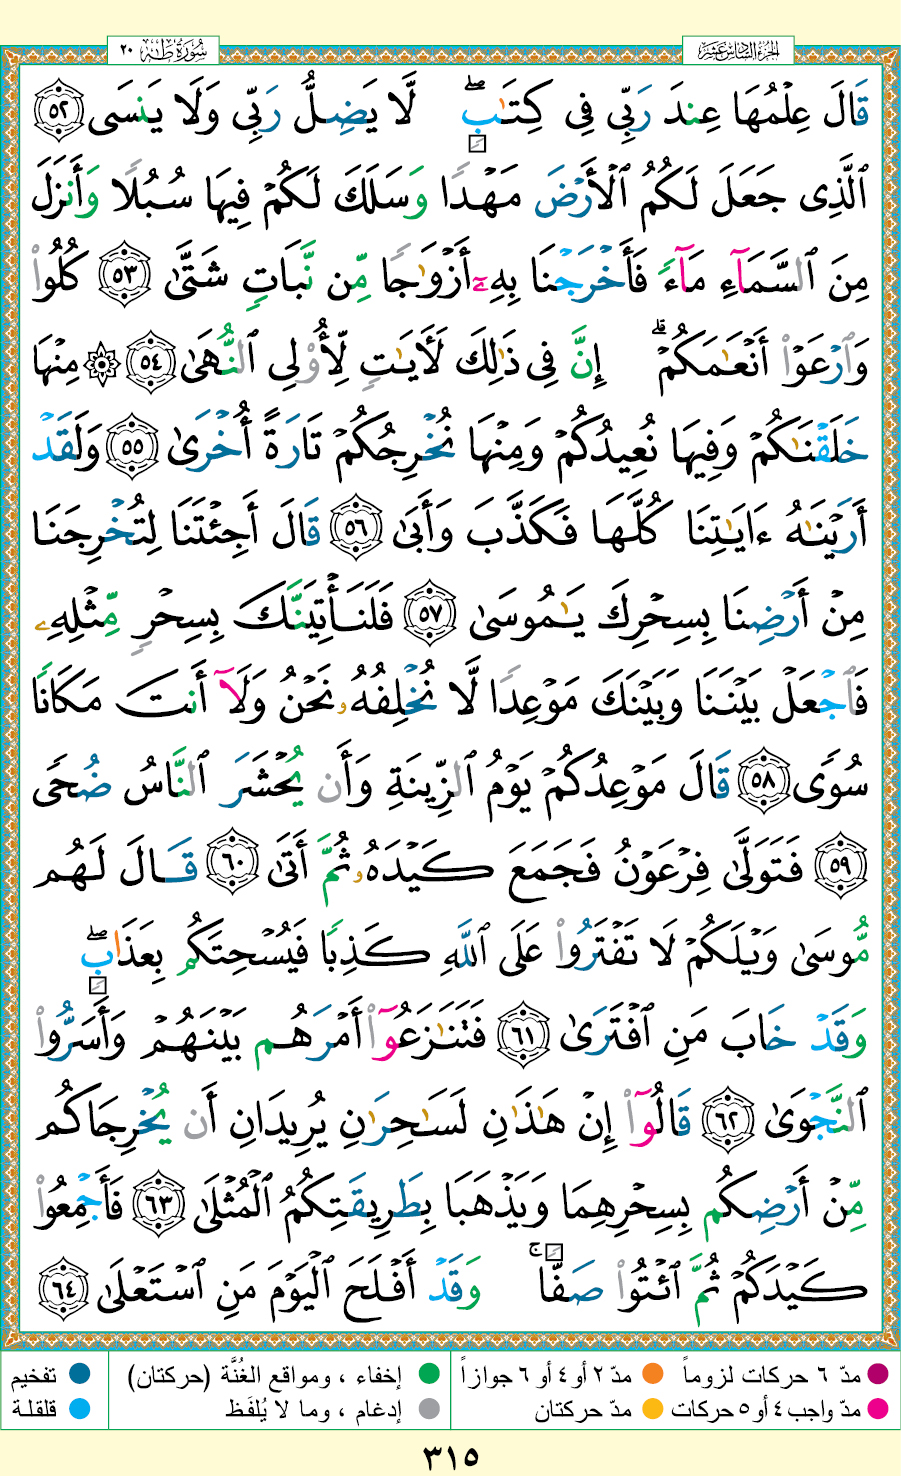 سُورَةُ طه ٢٠
الجزء السادس عشر
قَالَ عِلْمُهَا عِندَ رَبِّى فِى كِتَٰبٍۖ لَّا يَضِلُّ رَبِّى وَلَا يَنسَى ٥٢
ٱلَّذِى جَعَلَ لَكُمُ ٱلْأَرْضَ مَهْدًا وَسَلَكَ لَكُمْ فِيهَا سُبُلًا وَأَنزَلَ
مِنَ ٱلسَّمَآءِ مَآءً فَأَخْرَجْنَا بِهِۦٓ أَزْوَٰجًا مِّن نَّبَاتٍ شَتَّىٰ ٥٣ كُلُوا۟
وَٱرْعَوْا۟ أَنْعَٰمَكُمْۗ إِنَّ فِى ذَٰلِكَ لَءَايَٰتٍ لِّأُو۟لِى ٱلنُّهَىٰ ٥٤ ۞ مِنْهَا
خَلَقْنَٰكُمْ وَفِيهَا نُعِيدُكُمْ وَمِنْهَا نُخْرِجُكُمْ تَارَةً أُخْرَىٰ ٥٥ وَلَقَدْ
أَرَيْنَٰهُ ءَايَٰتِنَا كُلَّهَا فَكَذَّبَ وَأَبَىٰ ٥٦ قَالَ أَجِئْتَنَا لِتُخْرِجَنَا
مِنْ أَرْضِنَا بِسِحْرِكَ يَٰمُوسَىٰ ٥٧ فَلَنَأْتِيَنَّكَ بِسِحْرٍ مِّثْلِهِۦ
فَٱجْعَلْ بَيْنَنَا وَبَيْنَكَ مَوْعِدًا لَّا نُخْلِفُهُۥ نَحْنُ وَلَآ أَنتَ مَكَانًا
سُوًى ٥٨ قَالَ مَوْعِدُكُمْ يَوْمُ ٱلزِّينَةِ وَأَن يُحْشَرَ ٱلنَّاسُ ضُحًى
٥٩ فَتَوَلَّىٰ فِرْعَوْنُ فَجَمَعَ كَيْدَهُۥ ثُمَّ أَتَىٰ ٦٠ قَالَ لَهُم
مُّوسَىٰ وَيْلَكُمْ لَا تَفْتَرُوا۟ عَلَى ٱللَّهِ كَذِبًا فَيُسْحِتَكُم بِعَذَابٍۖ
وَقَدْ خَابَ مَنِ ٱفْتَرَىٰ ٦١ فَتَنَٰزَعُوٓا۟ أَمْرَهُم بَيْنَهُمْ وَأَسَرُّوا۟
ٱلنَّجْوَىٰ ٦٢ قَالُوٓا۟ إِنْ هَٰذَٰنِ لَسَٰحِرَٰنِ يُرِيدَانِ أَن يُخْرِجَاكُم
مِّنْ أَرْضِكُم بِسِحْرِهِمَا وَيَذْهَبَا بِطَرِيقَتِكُمُ ٱلْمُثْلَىٰ ٦٣ فَأَجْمِعُوا۟
كَيْدَكُمْ ثُمَّ ٱئْتُوا۟ صَفًّاۚ وَقَدْ أَفْلَحَ ٱلْيَوْمَ مَنِ ٱسْتَعْلَىٰ ٦٤
مدّ ٦ حركات لزوماً مدّ ٢ أو ٤ أو ٦ جوازاً إخفاء ، ومواقع الغُنَّة (حركتان) تفخيم
مدّ واجب ٤ أو ٥ حركات مدّ حركتان إدغام ، وما لا يُلفَظ قلقلة
٣١٥